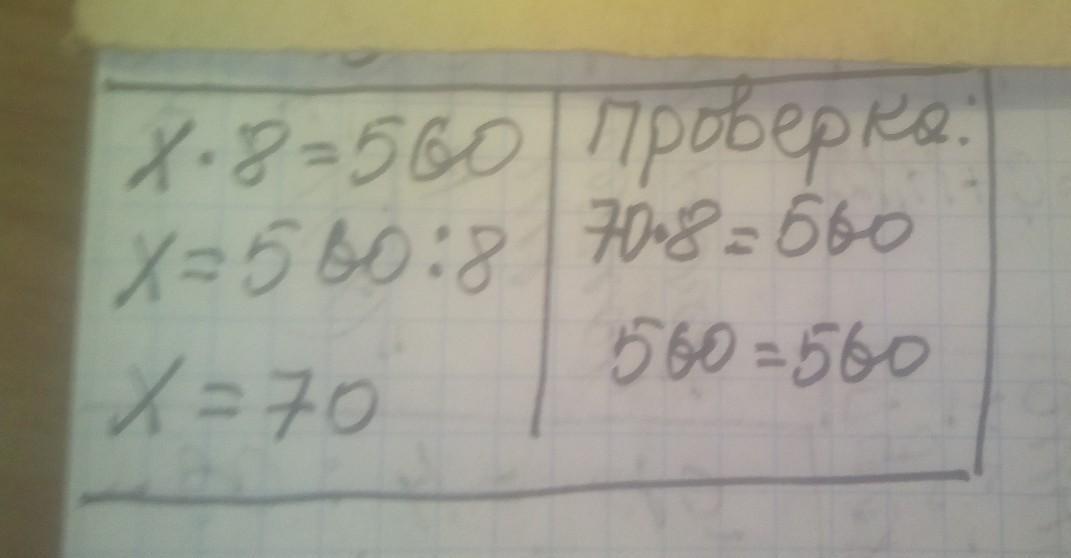 х · 8 = 560
х = 560 : 8
х = 70
проверка:
70 · 8 = 560
560 = 560